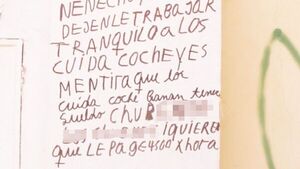 NENECHO
DEJENLE TRABAJAR
TRANQUILO A LOS
CUIDA COCHEYES
MENTIRA que los
cuida coche Ganan tener
Sueldo CHUR
IQUIEREN
que LE PAGE 4500 X hora